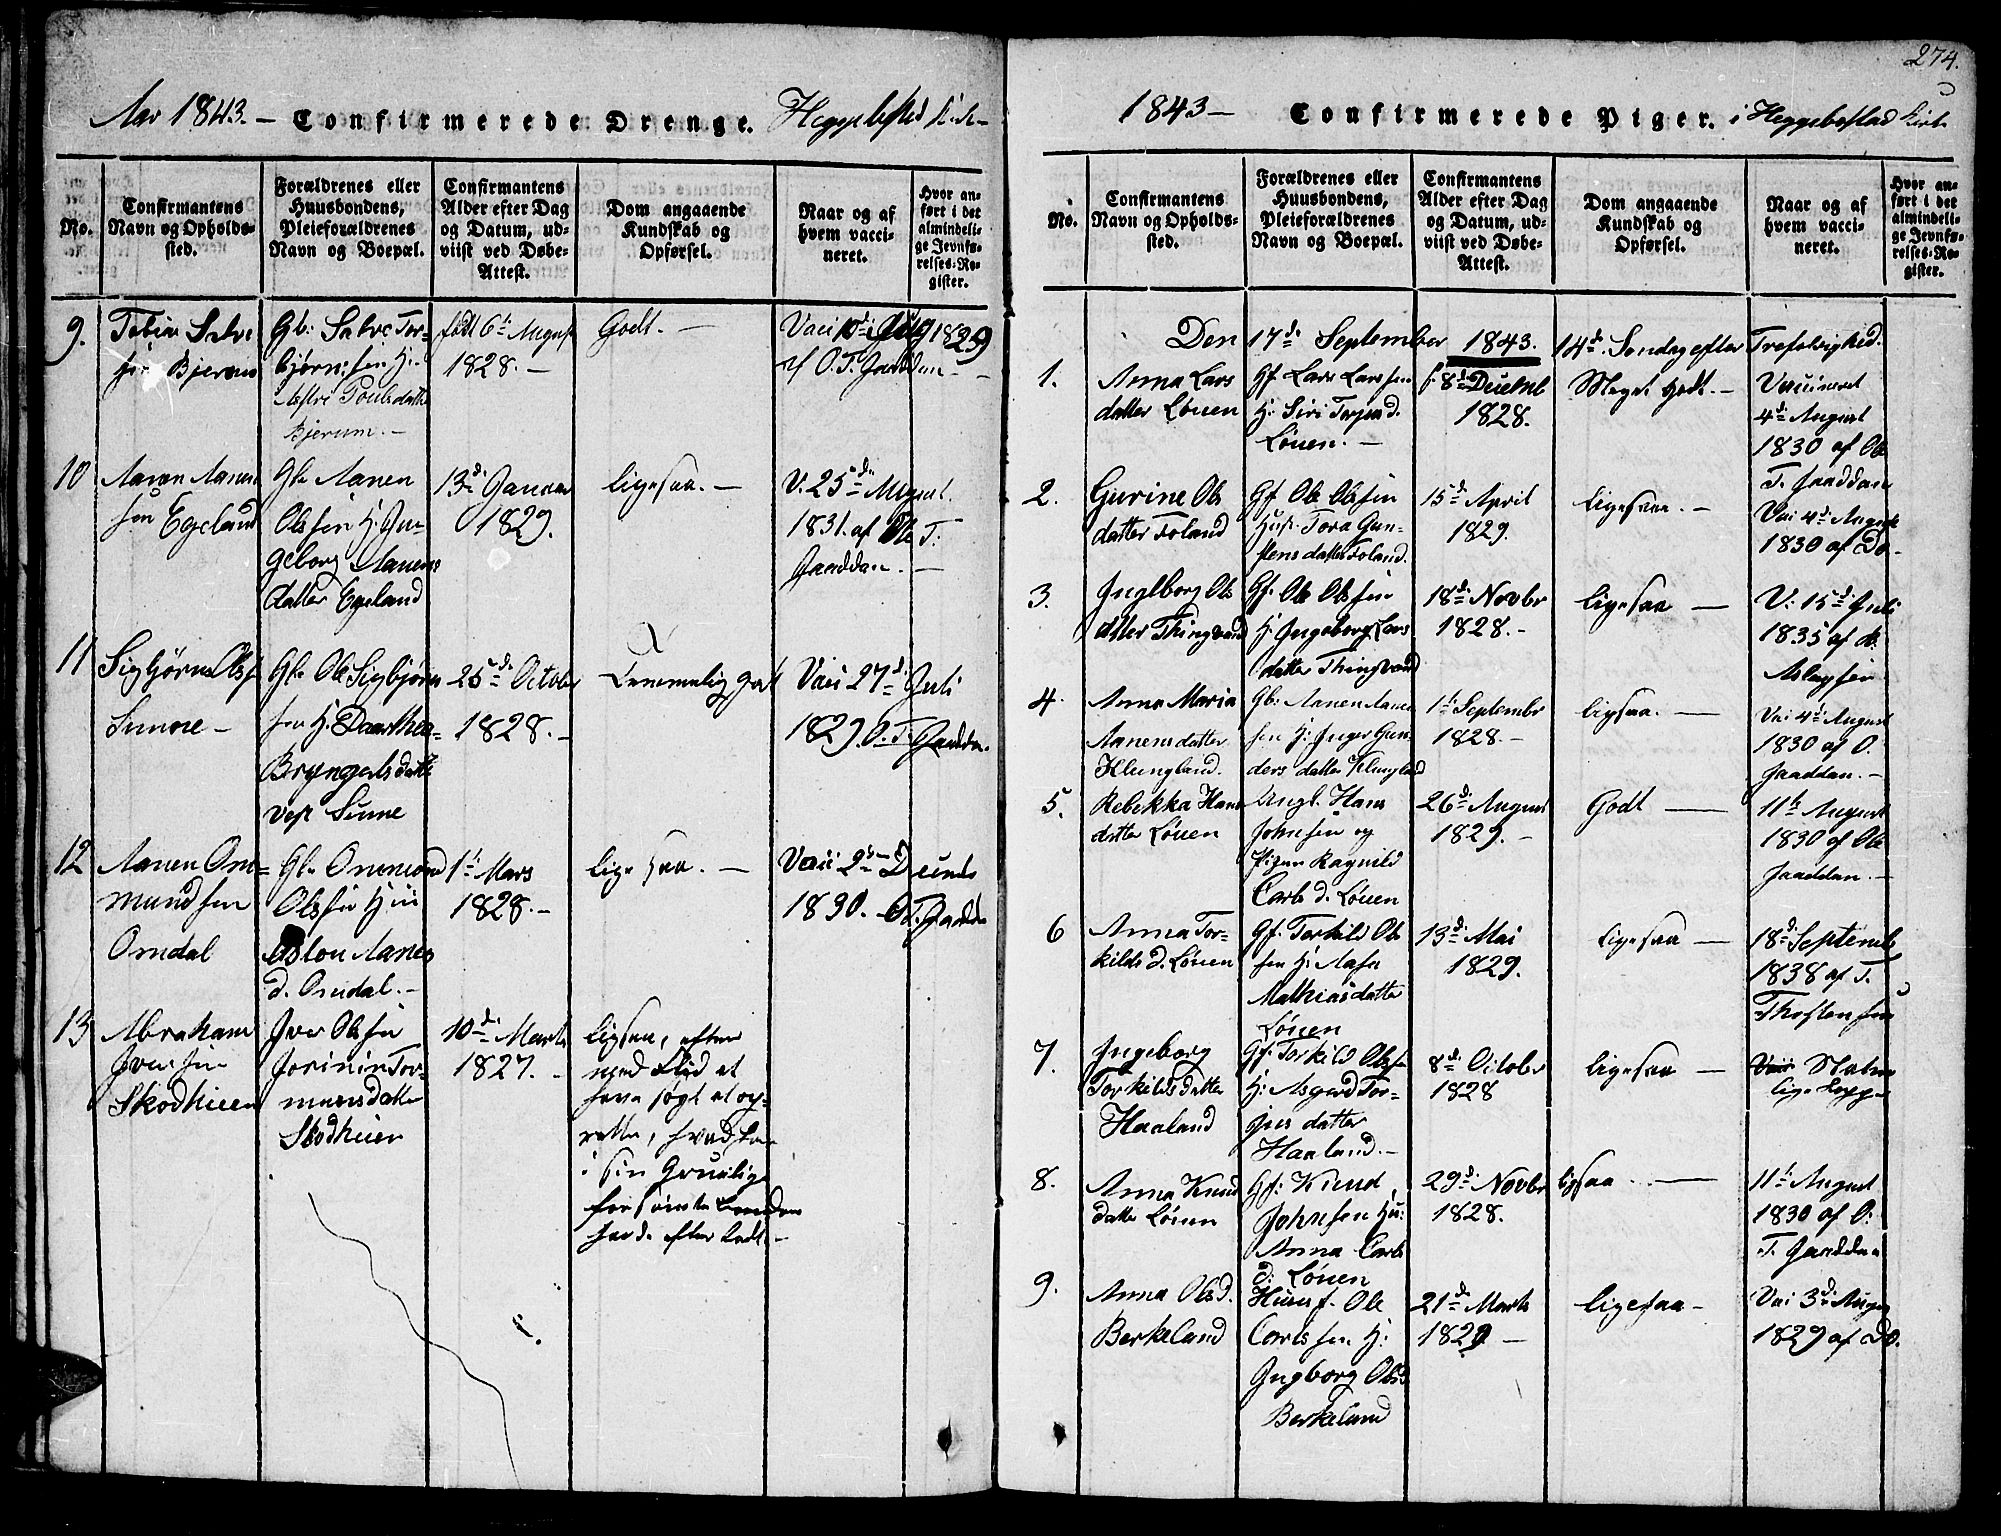 Aar 1843. – Confirmerede Drenge. Heggebestad Kirke
No.
Confirmantens
Navn og Opholds-
sted.
Forældrenes eller
Huusbondens,
Pleieforældrenes
Navn og Boepæl.
Confirmantens
Alder efter Dag
og Datum, ud-
viist ved Døbe-
Attest.
Dom angaaende
Kundskab og
Opførsel.
Naar og af
hvem vacci-
neret.
Hvor an-
ført i det
almindeli-
ge Jevnfø-
relses-Re-
gister.
9.
Tobias Salve
sen Bjerum
Gb: Salve Tor-
bjørnsen H:
Astri Poulsdatter
Bjerum. –
født 6te August
1828. –
Godt. –
Vacc 10de Aug 1829
af O. T. Jaaddan –
10
Aanen Aanen
sen Egeland
Gb. Aanen
Olsen H: In-
geborg Aanens
datter Egeland
13de Januar
1829.
ligesaa. –
V. 25de August
1831. af Ole T:
Jaaddan. –
11
Sigbjørn Olss
Sunne –
Gb. Ole Sigbjørn
sen H: Daarthea
Bryngelsdatter
Sunne
25de October
1828. –
Temmelig godt
Vacc 27de Juli
1829. O. T. Jaaddan.
12
Aanen Om-
mundsen
Omdal
Gb. Ommond
Olsen H
Aslou Aanens
d. Omdal. –
1te Mars
1828. –
ligesaa. –
Vacc 2den Decemb
1830. O. T. Jaadda
13
Abraham
Iversen
Skodheien
Iver Olsen
Tor-
munsdatter
Skodheien
10de Marts
1827. –
ligesaa, efter
med Flid at
have søgt at op-
rette, hvad han
i sin Gruelige
forsømte
havde efterladt. –
274.
1843 – Confirmerede Piger. i Heggebostad Kirke
No.
Confirmantens
Navn og Opholds-
sted.
Forældrenes eller
Huusbondens,
Pleieforældrenes
Navn og Boepæl.
Confirmantens
Alder efter Dag
og Datum, ud-
viist ved Døbe-
Attest.
Dom angaaende
Kundskab og
Opførsel.
Naar og af
hvem vacci-
neret.
Hvor an-
ført i det
almindeli-
ge Jevnfø-
relses-Re-
gister.
Den 17de September 1843. 14de Søndag efter Trefoldighed.
1.
Anna Lars
datter Løuen
Gf Lars Larssen
H: Siri Terjesd.
Løuen. –
f. 8de Decembr
1828.
Meget Godt. –
Vaccineret
4de August
1830 af Ole
T. Jaaddan
2.
Gurine Ols
datter Foland
Gf Ole Olsen
Hust. Tora Gun-
stensdatter Foland.
15de April
1829.
ligesaa. –
Vac 4de August
1830 af Do. –
3.
Ingeborg Ols
datter Thingvand
Gf. Ole Olsen
H: Ingeborg Lars
datter Thingvand
18de Novbr
1828. –
ligesaa –
V: 15de Juli
1835 af A.
Aslagsen
4.
Anna Maria
Aanensdatter
Klungland.
Gb: Aanen Aanen
sen H: Inger Gun-
dersdatter Klungland
1te Septembr
1828. –
ligsaa. –
Vac 4de August
1830 af O.
Jaaddan. –
5.
Rebekka Hans
datter Løuen
Ungk. Hans
Johnsen og
Pigen Ragnild
Carls d. Løuen
26de August
1829. –
Godt –
11te August
1830 af Ole
Jaaddan. –
6
Anna Tor-
kilds d. Løuen
Gf. Torkild Ols
sen H: Aase
Mathiasdatter
Løuen
13de Mai
1829.
ligesaa –
18de Septemb
1838 af T.
Thorstensen
7.
Ingeborg
Torkildsdatter
Haaland
Gf. Torkild Olss
H: Asgierd Tor-
jusdatter
Haaland. –
8de October
1828
ligesaa –
Vacc Natur
lige Kopp
8.
Anna Knuds
datter Løuen
Gf: Knud
Johnsen Hu:
Anna Carls
d: Løuen
29de Novbr
1828.
ligsaa. –
11te August
1830 af O:
T. Jaaddan
9.
Anna Olsd.
Berkeland
Huusf. Ole
Carlssen H:
Ingborg Olsd
Berkeland
21de Marts
1829 –
ligesaa –
Vac 3de Augu
1829 af Do.